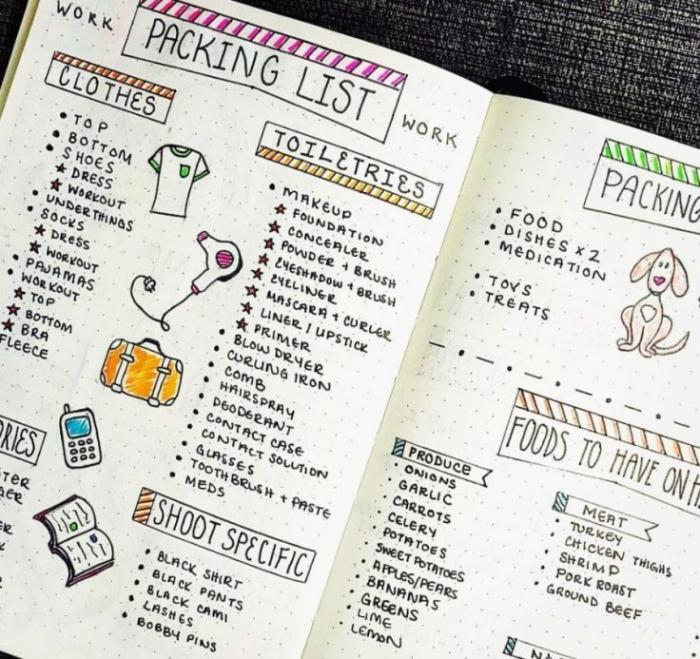 WORK
PACKING LIST
WORK
CLOTHES
TOP
BOTTOM
SHOES
DRESS
WORKOUT
UNDERTHINGS
SOCKS
DRESS
WORKOUT
PAJAMAS
WORKOUT
TOP
BOTTOM
BRA
FLEECE
TOILETRIES
MAKEUP
FOUNDATION
CONCEALER
POWDER + BRUSH
EYESHADOW + BRUSH
EYELINER
MASCARA + CURLER
LINER / LIPSTICK
PRIMER
BLOW DRYER
CURLING IRON
COMB
HAIRSPRAY
DEODERANT
CONTACT CASE
CONTACT SOLUTION
GLASSES
TOOTHBRUSH + PASTE
MEDS
SHOOT SPECIFIC
BLACK SHIRT
BLACK PANTS
BLACK CAMI
LASHES
BOBBY PINS
PACKING
FOOD
DISHES x 2
MEDICATION
TOYS
TREATS
FOODS TO HAVE ON
PRODUCE
ONIONS
GARLIC
CARROTS
CELERY
POTATOES
SWEET POTATOES
APPLES/PEARS
BANANAS
GREENS
LIME
LEMON
MEAT
TURKEY
CHICKEN THIGHS
SHRIMP
PORK ROAST
GROUND BEEF